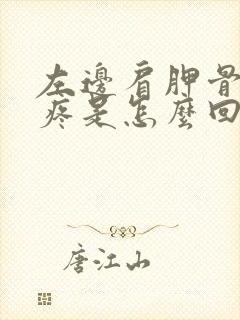 左邊肩胛骨
疼是怎麼回
唐江山